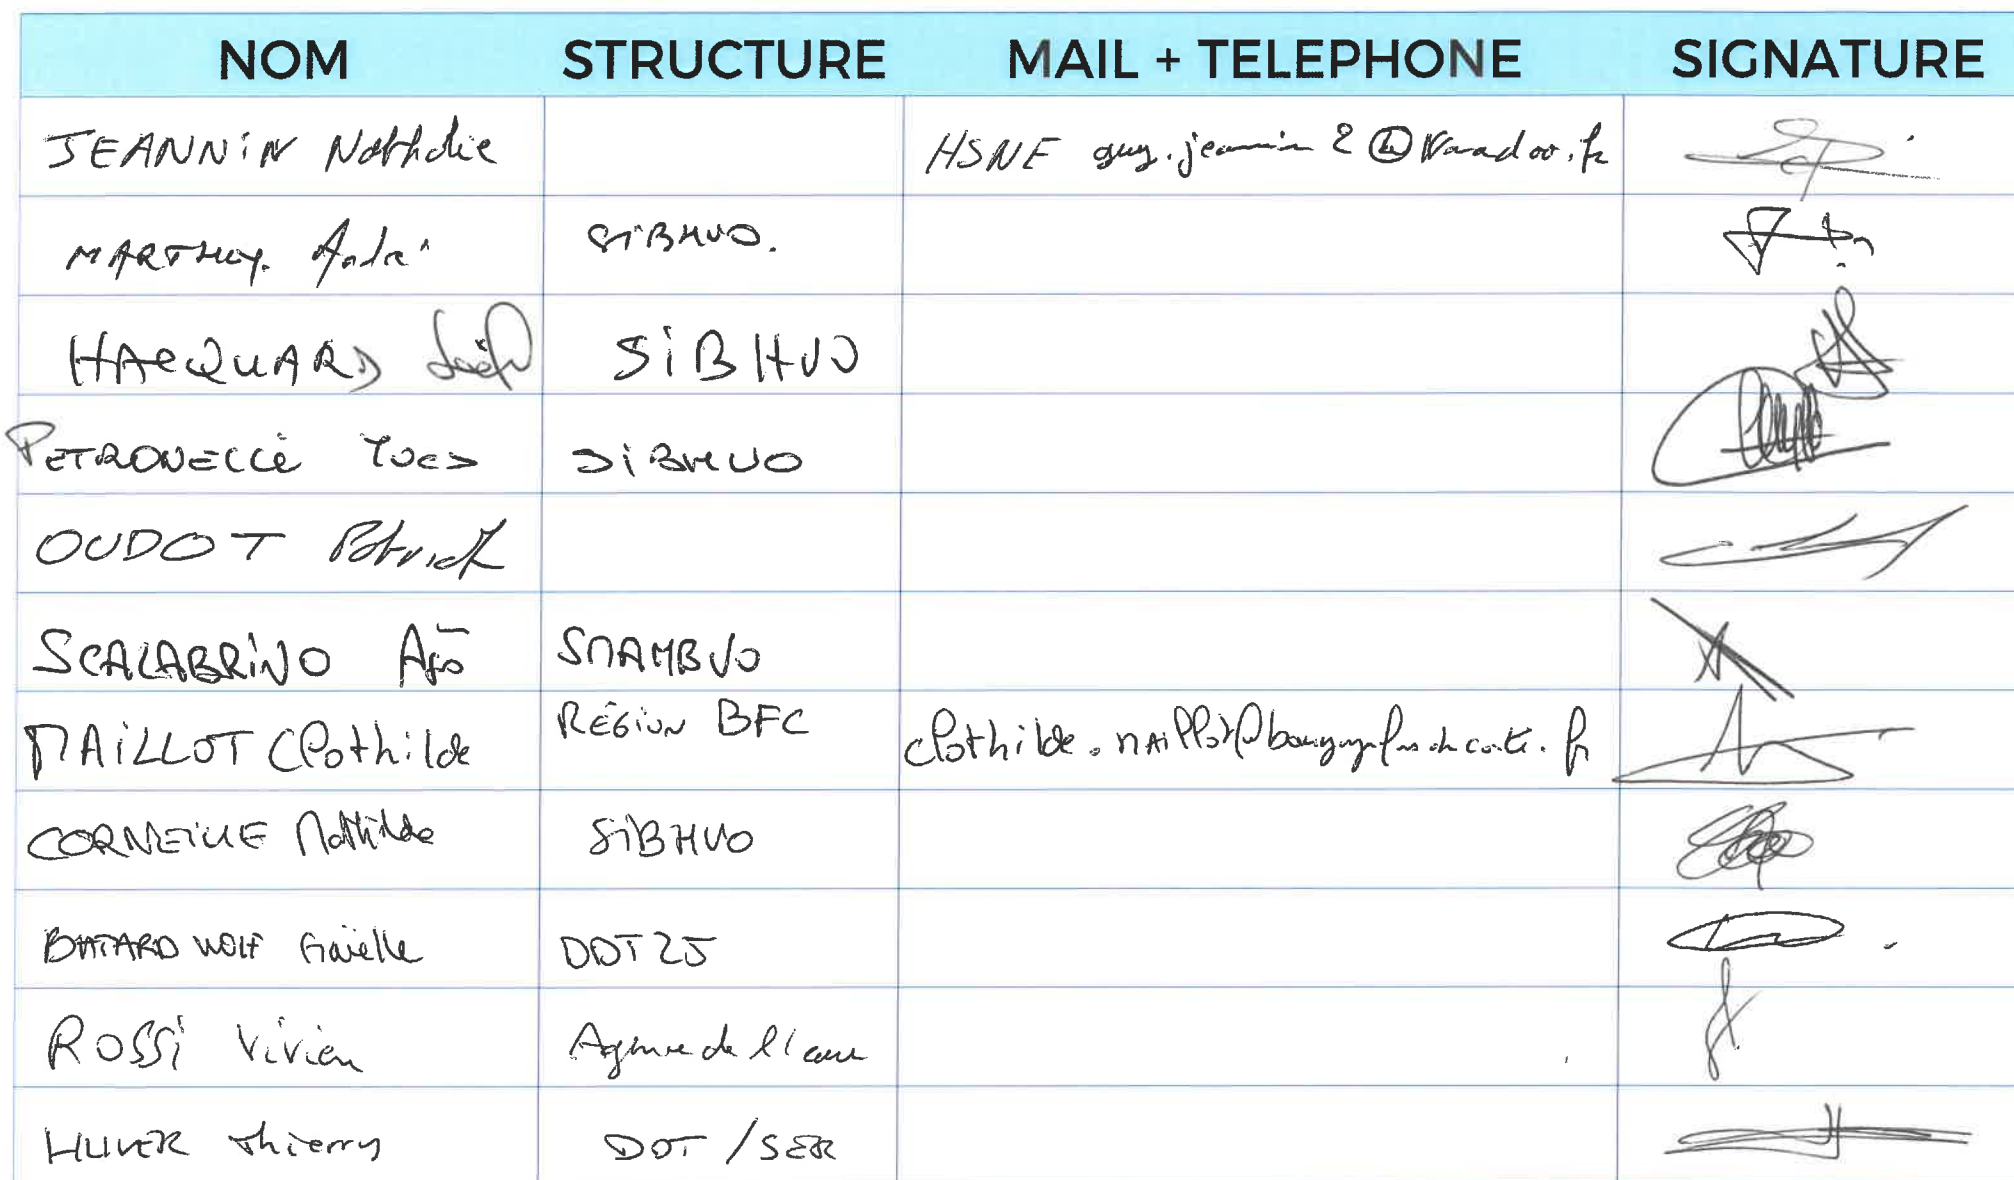 NOM STRUCTURE MAIL + TELEPHONE SIGNATURE
JEANNIN Nathalie HSNE guy.jeannin2@wanadoo.fr
MARTHEY André SIBHVO.
HACQUARD SIBHVO
PETRONELLI Yves SIBHVO
OUDOT Patrick
SCALABRINO SMAMBVO
MAILLOT Clothilde RÉGION BFC clothilde.maillot@bourgognefranchecomte.fr
CORNEILLE Mathilde SIBHVO
BATARD WOLF Gaëlle DDT 25
ROSSI Vivien Agence de l'eau
HUVER Thierry DDT / SER